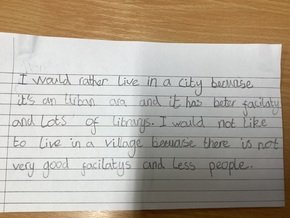 I would rather live in a city because
it's an Urban ara and it has beter facilaty
and Lots of librarys. I would not like
to live in a village because there is not
very good facilatys and Less people.